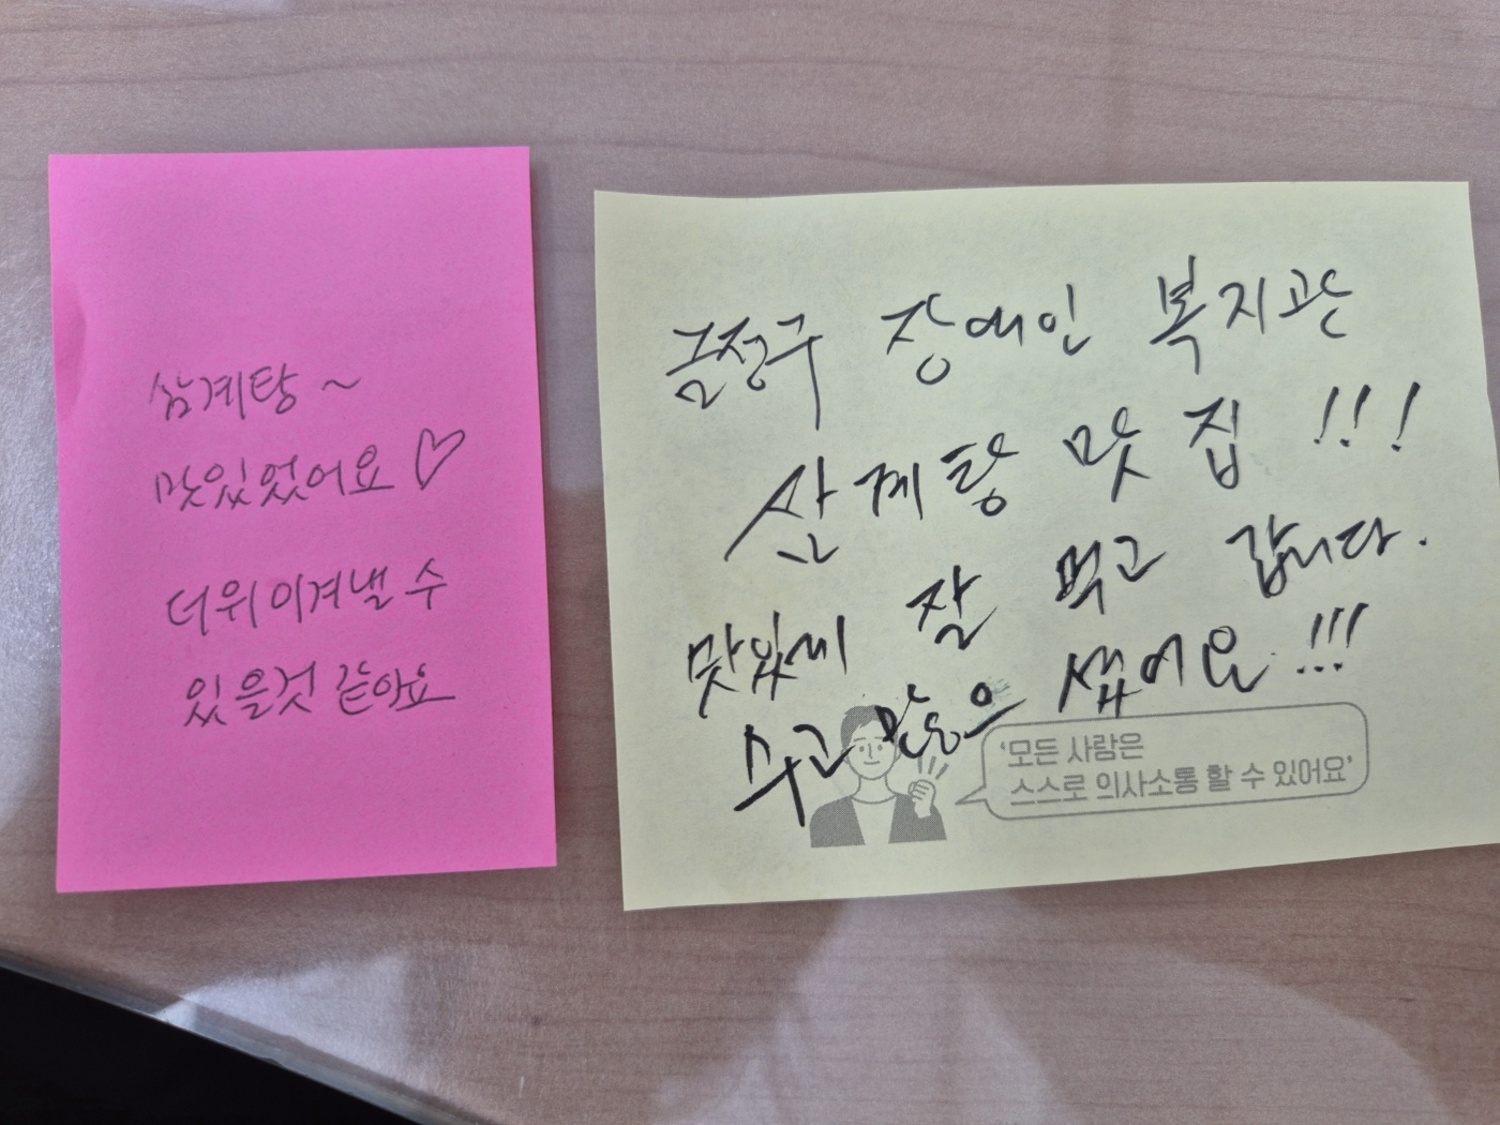 삼계탕~
맛있었어요♡
더위 이겨낼 수
있을것 같아요
금정구 장애인 복지관
산계탕 맛 집 !!!
맛있게 잘 먹고 갑니다.
수고 많으 셨어요 !!!
'모든 사람은
스스로 의사소통 할 수 있어요'